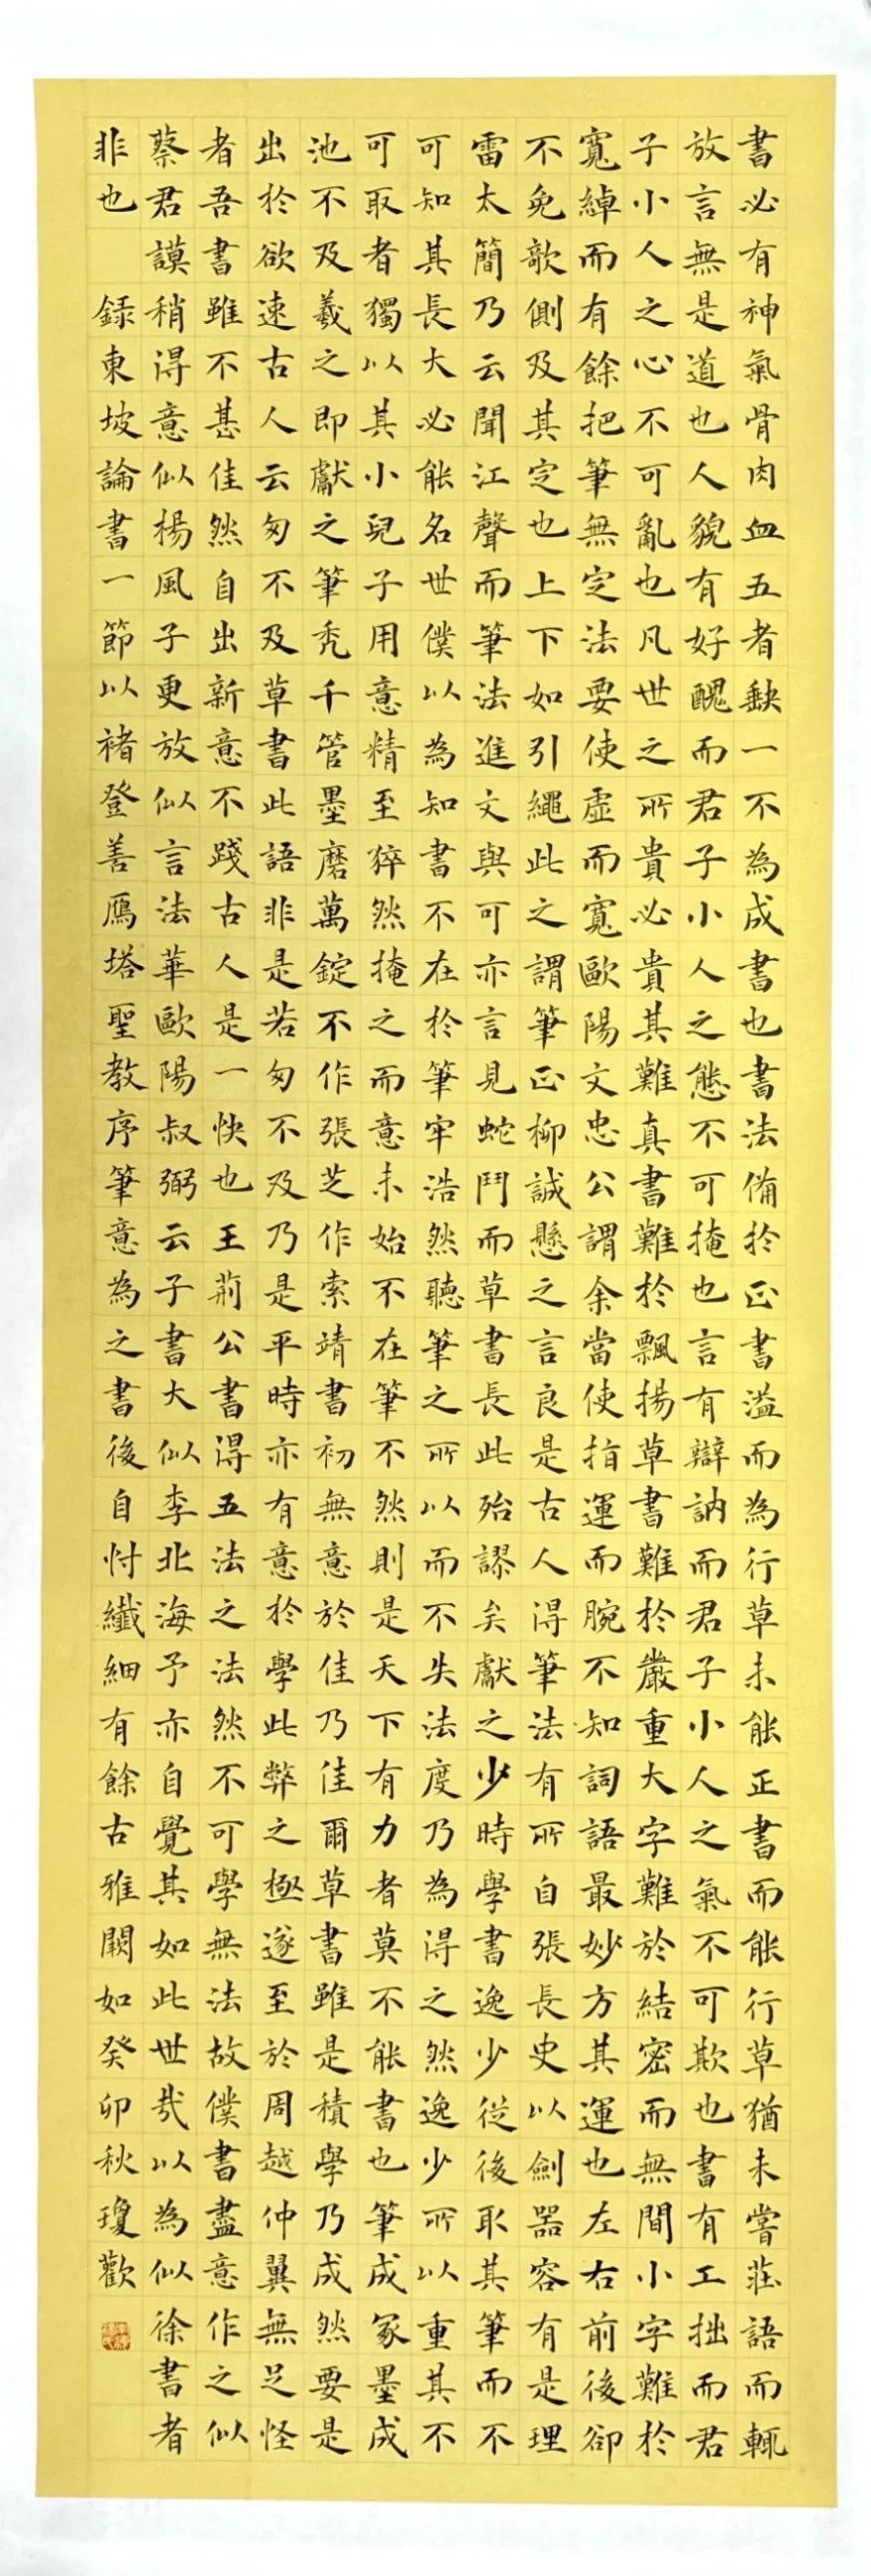 書必有神氣骨肉血五者缺一不為成書也書法備於正書溢而為行草未能正書而能行草猶未嘗莊語而輒
放言無是道也人貌有好醜而君子小人之態不可掩也言有辯訥而君子小人之氣不可欺也書有工拙而君
子小人之心不可亂也凡世之所貴必貴其難真書難於飄揚草書難於嚴重大字難於結密而無間小字難於
寬綽而有餘把筆無定法要使虛而寬歐陽文忠公謂余當使指運而腕不知詞語最妙方其運也左右前後卻
不免欹側及其定也上下如引繩此之謂筆正柳誠懸之言良是古人得筆法有所自張長史以劍器容有是理
雷太簡乃云聞江聲而筆法進文與可亦言見蛇鬥而草書長此殆謬矣獻之少時學書逸少從後取其筆而不
可知其長大必能名世僕以為知書不在於筆牢浩然聽筆之所以而不失法度乃為得之然逸少所以重其不
可取者獨以其小兒子用意精至猝然掩之而意未始不在筆不然則是天下有力者莫不能書也筆成冢墨成
池不及羲之即獻之筆禿千管墨磨萬錠不作張芝作索靖書初無意於佳乃佳爾草書雖是積學乃成然要是
出於欲速古人云匆不及草書此語非是若匆不及乃是平時亦有意於學此弊之極遂至於周越仲翼無足怪
者吾書雖不甚佳然自出新意不踐古人是一快也王荊公書得五法之法然不可學無法故僕書盡意作之似
蔡君謨稍得意似楊風子更放似言法華歐陽叔弼云子書大似李北海予亦自覺其如此世哉以為似徐書者
非也 錄東坡論書一節以褚登善雁塔聖教序筆意為之書後自忖纖細有餘古雅闕如癸卯秋瓊歡